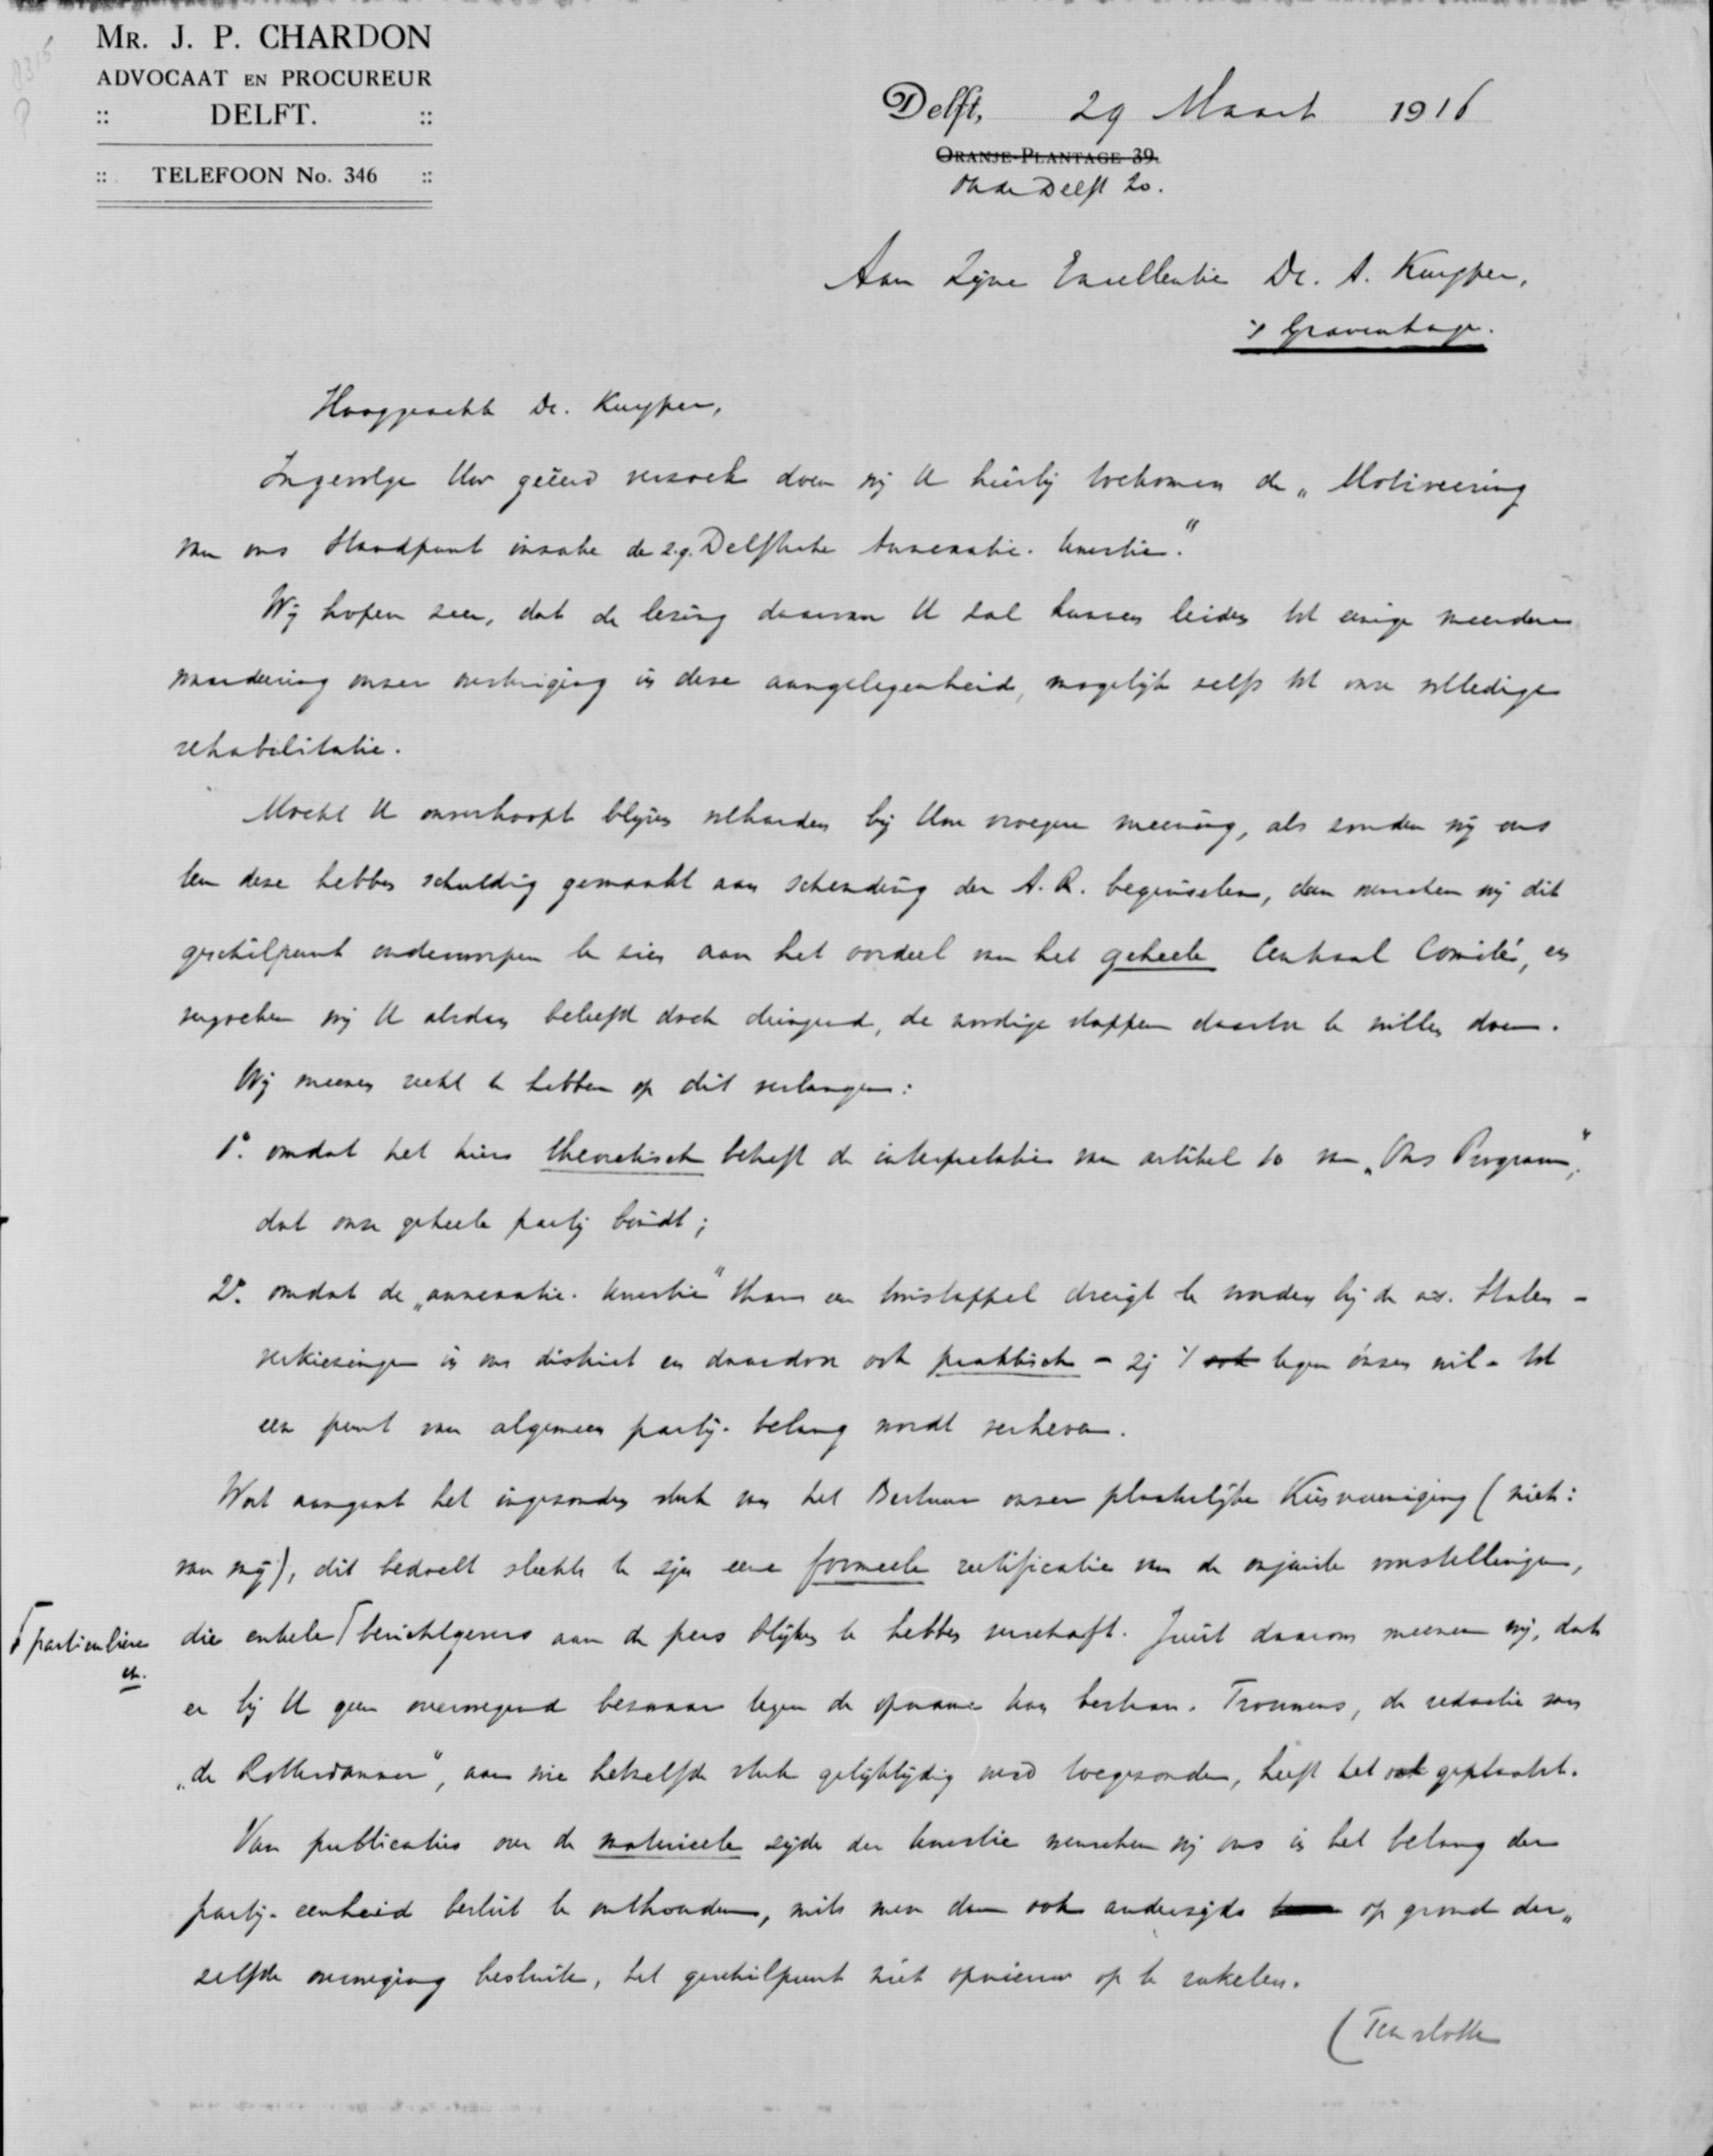 MR. J. P. CHARDON
ADVOCAAT EN PROCUREUR
:: DELFT. ::
:: TELEFOON No. 346 ::
Delft, 29 Maart 1916
ORANJE-PLANTAGE 39.
Oude Delft 20.
Aan Zijne Excellentie Dr. A. Kuyper,
's Gravenhage.
Hooggeachte Dr. Kuyper,
Ingevolge Uw geëerd verzoek doen wij U hierbij toekomen de „Motiveering
van ons Standpunt inzake de z.g. Delftsche Annexatie-kwestie."
Wij hopen zeer, dat de lezing daarvan U zal kunnen leiden tot eenige meerdere
waardeering onzer overtuiging in deze aangelegenheid, mogelijk zelfs tot onze volledige
rehabilitatie.
Mocht U onverhoopt blijven volharden bij Uw vroegere meening, als zouden wij ons
ten deze hebben schuldig gemaakt aan schending der A.R. beginselen, dan wenschen wij dit
geschilpunt onderworpen te zien aan het oordeel van het geheele Centraal Comité, en
verzoeken wij U alsdan beleefd doch dringend, de noodige stappen daartoe te willen doen.
Wij meenen recht te hebben op dit verlangen:
1o. omdat het hier theoretisch betreft de interpretatie van artikel 10 van „Ons Program",
dat onze geheele partij bindt;
2o. omdat de „annexatie-kwestie" thans een twistappel dreigt te worden bij de a.s. Staten-
verkiezingen in ons district en daardoor ook praktisch - zij 't ook tegen ónzen wil - tot
een punt van algemeen partij-belang wordt verheven.
Wat aangaat het ingezonden stuk van het Bestuur onzer plaatselijke Kiesvereeniging (niet:
van mij), dit bedoelt slechts te zijn eene formeele rectificatie van de onjuiste voorstellingen,
die enkele particuliere berichtgevers aan de pers blijken te hebben verschaft. Juist daarom meenen wij, dat
er bij U geen overwegend bezwaar tegen de opname kan bestaan. Trouwens, de redactie van
„de Rotterdammer", aan wie hetzelfde stuk gelijktijdig werd toegezonden, heeft het ook geplaatst.
Van publicaties over de materieele zijde der kwestie wenschen wij ons in het belang der
partij-eenheid beslist te onthouden, mits men dan ook anderzijds op grond der„
zelfde overweging besluite, het geschilpunt niet opnieuw op te rakelen.
(Ten slotte